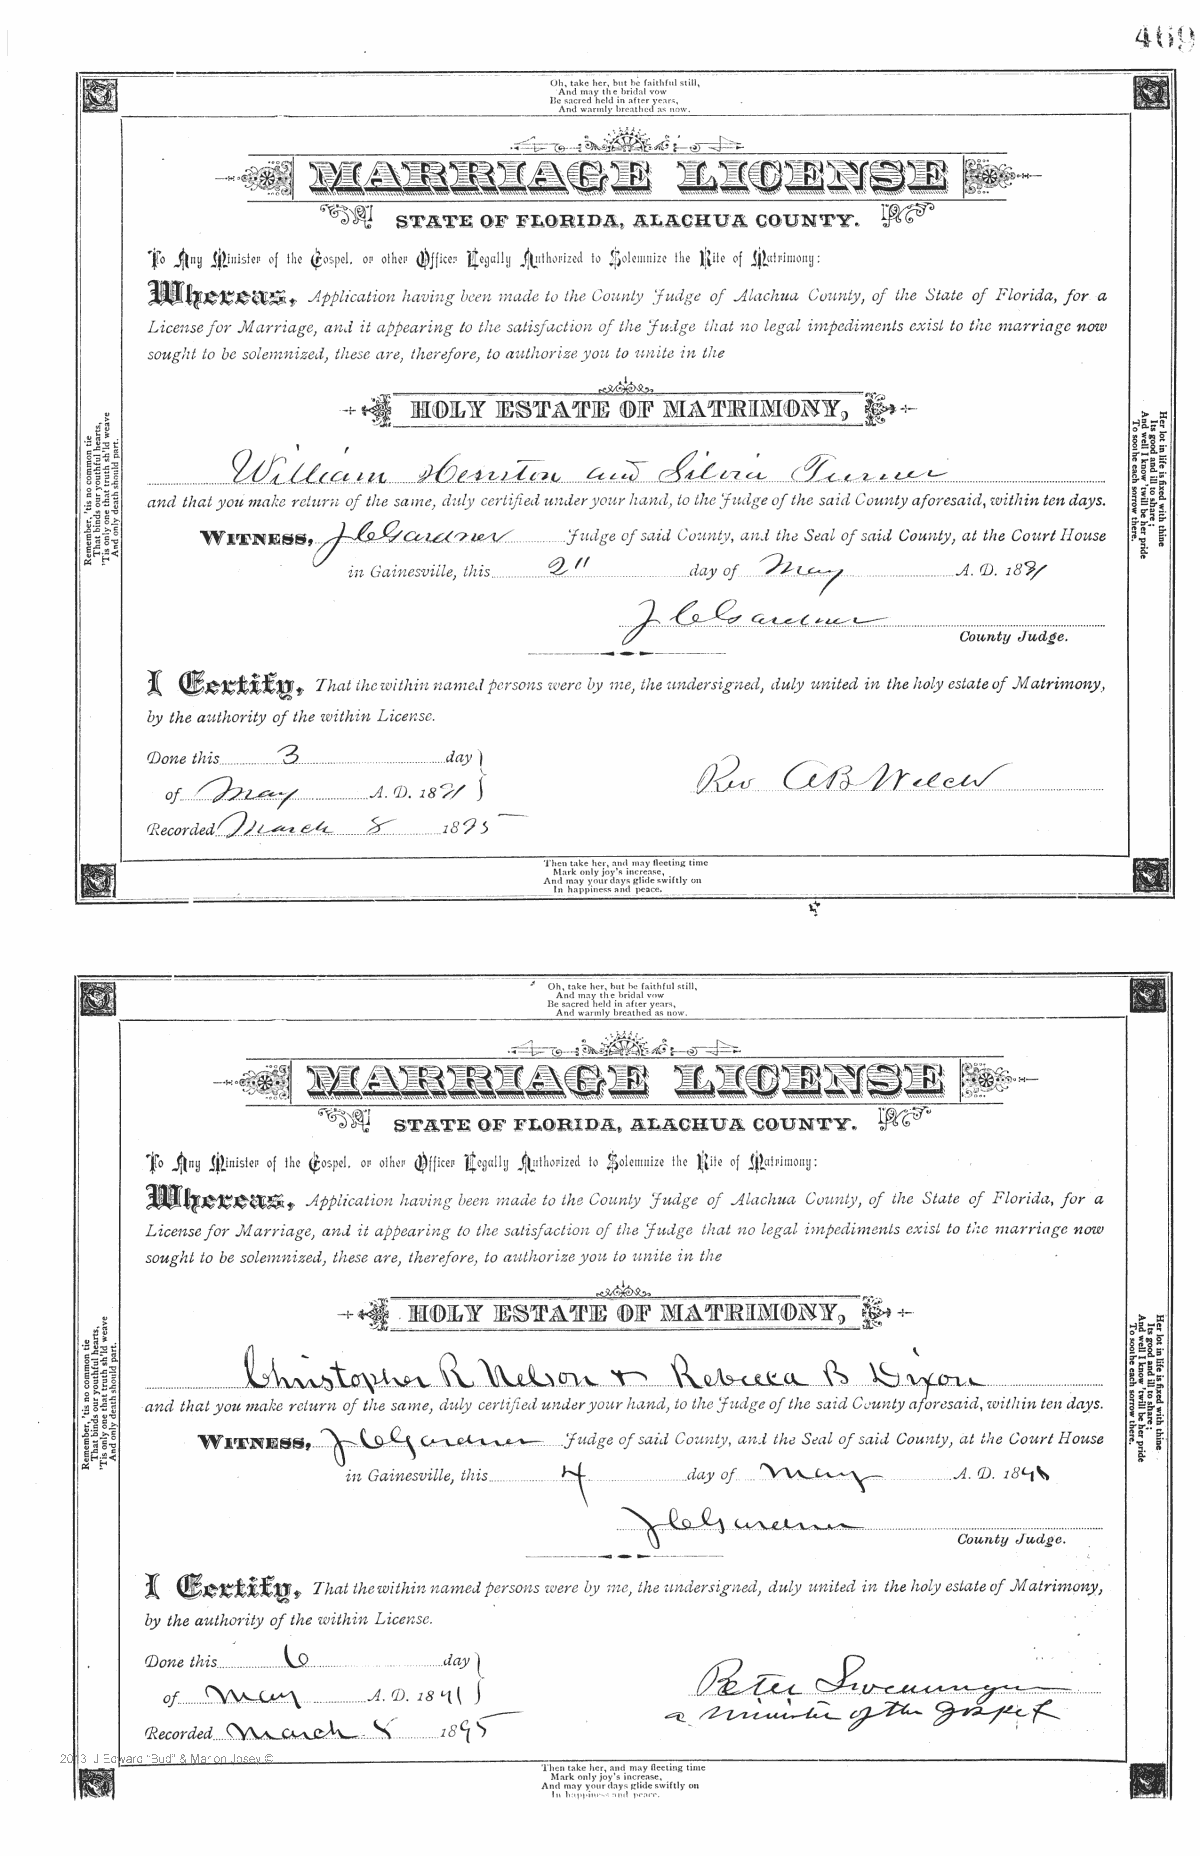 469
Oh, take her, but be faithful still,
And may the bridal vow
Be sacred held in after years,
And warmly breathed as now.
MARRIAGE LICENSE
STATE OF FLORIDA, ALACHUA COUNTY.
To Any Minister of the Gospel, or other Officer Legally Authorized to Solemnize the Rite of Matrimony:
Whereas, Application having been made to the County Judge of Alachua County, of the State of Florida, for a
License for Marriage, and it appearing to the satisfaction of the Judge that no legal impediments exist to the marriage now
sought to be solemnized, these are, therefore, to authorize you to unite in the
HOLY ESTATE OF MATRIMONY,
William and Silvia Turner
and that you make return of the same, duly certified under your hand, to the Judge of the said County aforesaid, within ten days.
WITNESS, J C Gardner Judge of said County, and the Seal of said County, at the Court House
in Gainesville, this 2" day of May A. D. 1891
J C Gardner
County Judge.
I Certify, That the within named persons were by me, the undersigned, duly united in the holy estate of Matrimony,
by the authority of the within License.
Done this 3 day
of May A. D. 1891
Rev A B Welch
Recorded March 8 1895
Remember, 'tis no common tie
That binds our youthful hearts,
'Tis only one that truth sh'ld weave
And only death should part.
Her lot in life is fixed with thine
Its good and ill to share;
And well I know 'twill be her pride
To soothe each sorrow there.
Then take her, and may fleeting time
Mark only joy's increase,
And may your days glide swiftly on
In happiness and peace.
Oh, take her, but be faithful still,
And may the bridal vow
Be sacred held in after years,
And warmly breathed as now.
MARRIAGE LICENSE
STATE OF FLORIDA, ALACHUA COUNTY.
To Any Minister of the Gospel, or other Officer Legally Authorized to Solemnize the Rite of Matrimony:
Whereas, Application having been made to the County Judge of Alachua County, of the State of Florida, for a
License for Marriage, and it appearing to the satisfaction of the Judge that no legal impediments exist to the marriage now
sought to be solemnized, these are, therefore, to authorize you to unite in the
HOLY ESTATE OF MATRIMONY,
Christopher R Nelson & Rebecca B Dixon
and that you make return of the same, duly certified under your hand, to the Judge of the said County aforesaid, within ten days.
WITNESS, J C Gardner Judge of said County, and the Seal of said County, at the Court House
in Gainesville, this 4 day of May A. D. 18
J C Gardner
County Judge.
I Certify, That the within named persons were by me, the undersigned, duly united in the holy estate of Matrimony,
by the authority of the within License.
Done this 6 day
of May A. D. 1891
Peter
a minister of the gospel
Recorded March 8 1895
Remember, 'tis no common tie
That binds our youthful hearts,
'Tis only one that truth sh'ld weave
And only death should part.
Her lot in life is fixed with thine
Its good and ill to share;
And well I know 'twill be her pride
To soothe each sorrow there.
2013 J Edward "Bud" & Marion Josey ©
Then take her, and may fleeting time
Mark only joy's increase,
And may your days glide swiftly on
In happiness and peace.